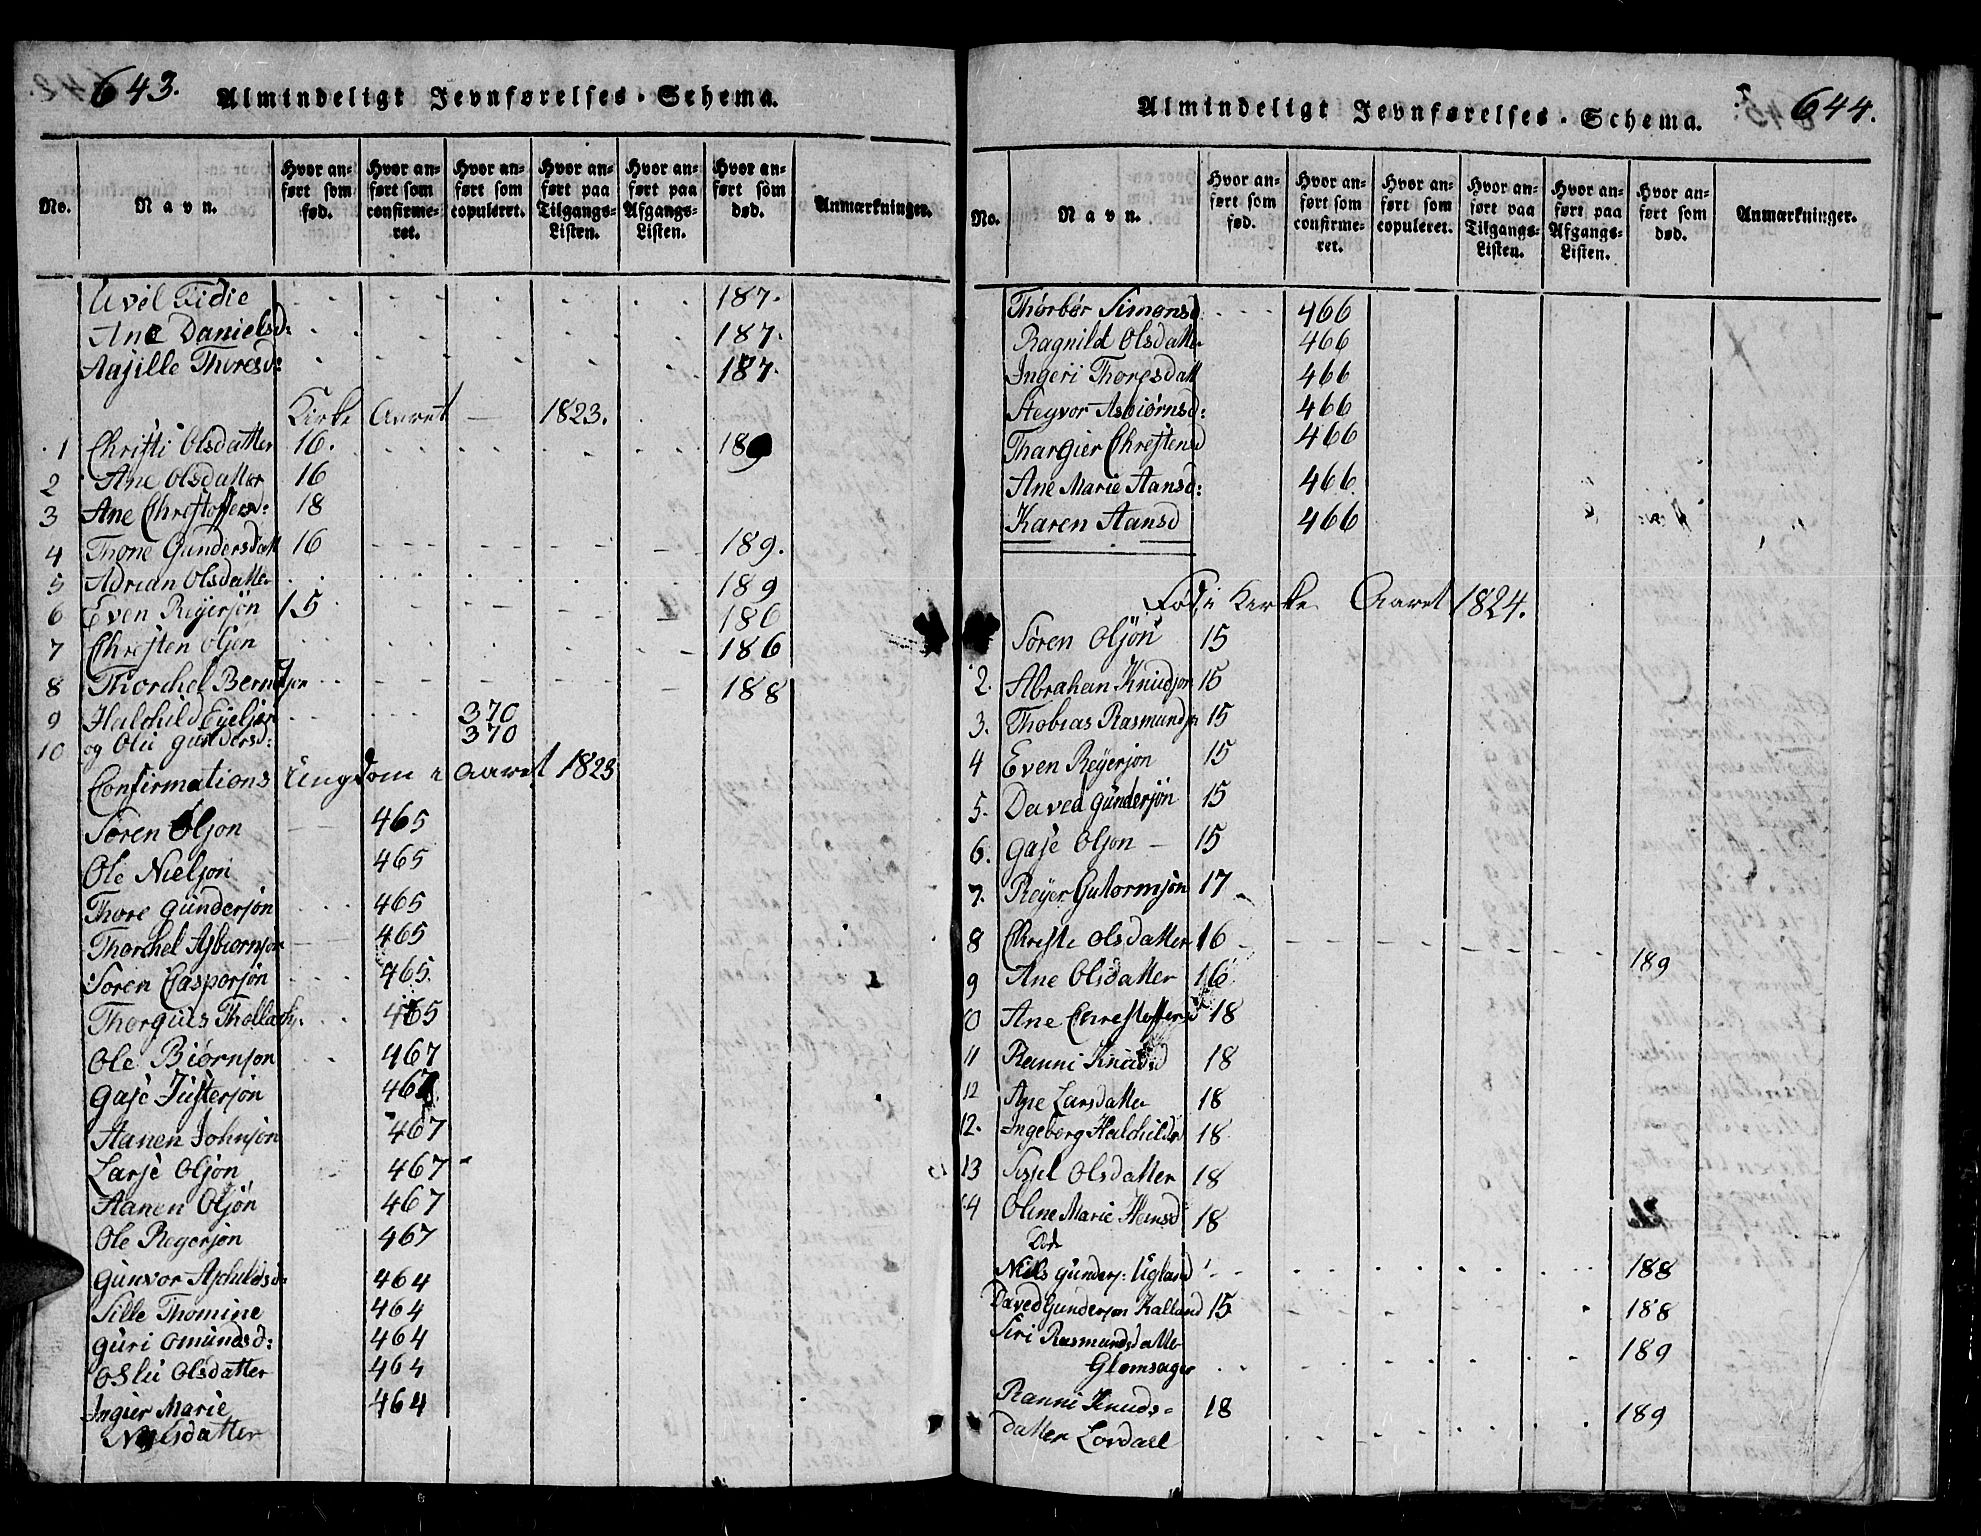 643.
Almindeligt Jevnførelses-Schema.
No. | Navn. | Hvor anført som fød. | Hvor anført som confirmeret. | Hvor anført som copuleret. | Hvor anført paa Tilgangs-Listen. | Hvor anført paa Afgangs-Listen. | Hvor anført som død. | Anmærkninger.
Uvel Tidie 187.
Ane Danielsd: 187.
Aasille Thoresd: 187.
Kirke Aaret — 1823.
1 Christi Olsdatter 16. 189
2 Ane Olsdatter 16
3 Ane Christoffersd: 18
4 Thone Gundersdatt 16 189.
5 Adrian Olsdatter 189
6 Even Reyersøn 15 186
7 Christen Olsen 186
8 Thorchel Berntsen 188
9 Halchild Eyelsen 370
10 og Olu Gundersd: 370
Confirmations Ungdom i Aaret 1823
Søren Olson 465
Ole Nielson 465
Thore Gundersøn 465
Thorchel Asbiørnsøn 465
Søren Casporsøn 465.
Thorguls Thollachs. 465
Ole Biørnson 467
Gase Justersøn 467
Aanen Johnsøn 467
Larse Olsøn 467
Aanen Olsøn 467
Ole Regersøn 467
Gunvor Aschildsd: 464
Sille Thomine 464
Guri Omundsd: 464
Oslu Olsdatter 464
Ingier Marie 464
Nielsdatter
644.
Almindeligt Jevnførelses-Schema.
No. | Navn. | Hvor anført som fød. | Hvor anført som confirmeret. | Hvor anført som copuleret. | Hvor anført paa Tilgangs-Listen. | Hvor anført paa Afgangs-Listen. | Hvor anført som død. | Anmærkninger.
Thorbør Simonsd 466
Ragnild Olsdatter 466
Ingeri Thoresdatt 466
Stegvor Asbiørnsd: 466
Thargier Christensd 466
Ane Marie Aansd: 466
Karen Aansd 466
Fød i Kirke Aaret 1824.
Søren Olsøn 15
2. Abraham Knudsøn 15
3. Thobias Rasmunds 15
4 Even Reyerson 15
5. David Gundersøn 15
6. Gase Olson — 15
7. Reyer Guttormsøn 17
8 Christi Olsdatter 16 189
9 Ane Olsdatter 16
10 Ane Christoffersd 18
11 Ranni Knudsd 18
12 Ane Larsdatter 18
12. Ingeborg Halchilds 18
13 Sissel Olsdatter 18
14 Oline Marie Hansd 18
Død
Niels Gunders: Ugland 188
David Gunderson Kalland 15 188
Siri Rasmundsdatter
Glomsager 189
Ranni Knuds- 18 189
datter Lordael